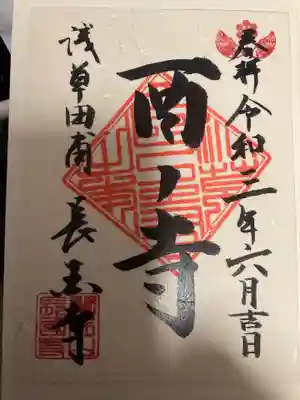 奉拝 令和三年六月吉日
酉ノ寺
浅草田甫 長国寺